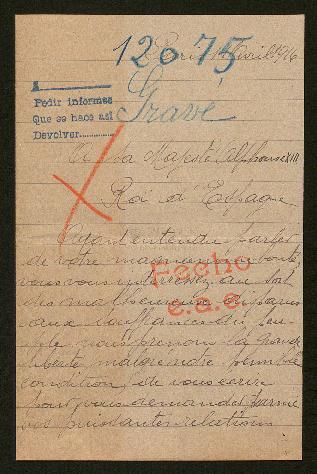 12075
Avril 1916
Grave
1
Pedir informes
Que se hace así
Devolver
A Sa Majesté Alphonse XIII
Roi d'Espagne
Ayant entendu parler
de votre magnanime bonté
vous vous intéressez au sort
des malheureux disparus
aux souffrances du peu
ple nous prenons la grande
liberté malgré notre pénible
condition, de vous écrire
pour vous demander parmi
vos puissantes relations
Fecho